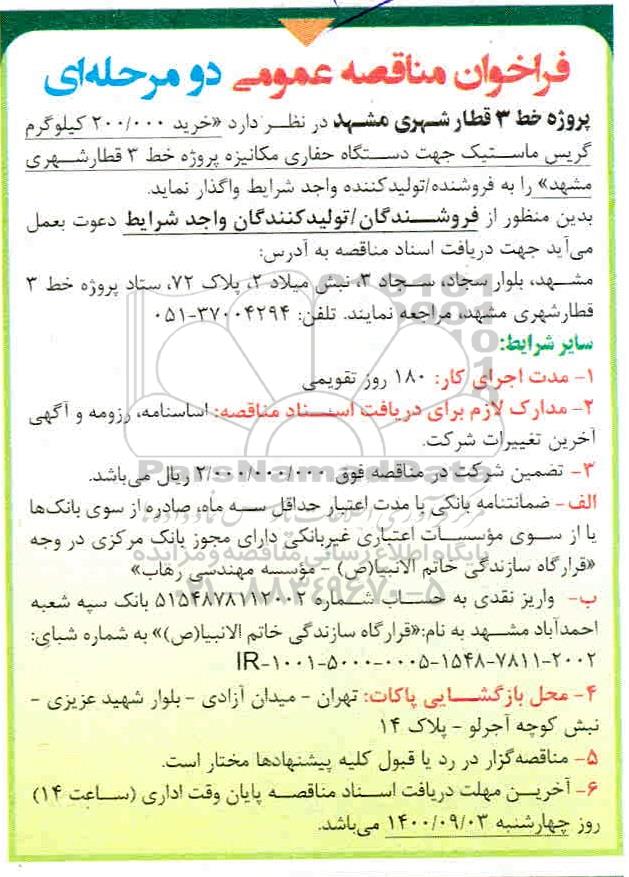 فراخوان مناقصه عمومی دو مرحله‌ای
پروژه خط ۳ قطار شهری مشهد در نظر دارد «خرید ۲۰۰/۰۰۰ کیلوگرم
گریس ماستیک جهت دستگاه حفاری مکانیزه پروژه خط ۳ قطارشهری
مشهد» را به فروشنده/تولیدکننده واجد شرایط واگذار نماید.
بدین منظور از فروشندگان/تولیدکنندگان واجد شرایط دعوت بعمل
می‌آید جهت دریافت اسناد مناقصه به آدرس:
مشهد، بلوار سجاد، سجاد ۳، نبش میلاد ۲، پلاک ۷۲، ستاد پروژه خط ۳
قطارشهری مشهد، مراجعه نمایند. تلفن: ۳۷۰۰۴۲۹۴-۰۵۱
سایر شرایط:
۱- مدت اجرای کار: ۱۸۰ روز تقویمی
۲- مدارک لازم برای دریافت اسناد مناقصه: اساسنامه، رزومه و آگهی
آخرین تغییرات شرکت.
۳- تضمین شرکت در مناقصه فوق ۲/۰۰۰/۰۰۰/۰۰۰ ریال می‌باشد.
الف- ضمانتنامه بانکی با مدت اعتبار حداقل سه ماه، صادره از سوی بانک‌ها
یا از سوی مؤسسات اعتباری غیربانکی دارای مجوز بانک مرکزی در وجه
«قرارگاه سازندگی خاتم الانبیا(ص) - مؤسسه مهندسی رهاب»
ب- واریز نقدی به حساب شماره ۵۱۵۴۸۷۸۱۱۲۰۰۲ بانک سپه شعبه
احمدآباد مشهد به نام:«قرارگاه سازندگی خاتم الانبیا(ص)» به شماره شبای:
IR-۱۰۰۱-۵۰۰۰-۰۰۰۵-۱۵۴۸-۷۸۱۱-۲۰۰۲
۴- محل بازگشایی پاکات: تهران - میدان آزادی - بلوار شهید عزیزی -
نبش کوچه آجرلو - پلاک ۱۴
۵- مناقصه‌گزار در رد یا قبول کلیه پیشنهادها مختار است.
۶- آخرین مهلت دریافت اسناد مناقصه پایان وقت اداری (ساعت ۱۴)
روز چهارشنبه ۱۴۰۰/۰۹/۰۳ می‌باشد.
ParsNamadData
پایگاه اطلاع رسانی مناقصه و مزایده
۰۲۱-۸۸۳۴۹۶۷۰-۵